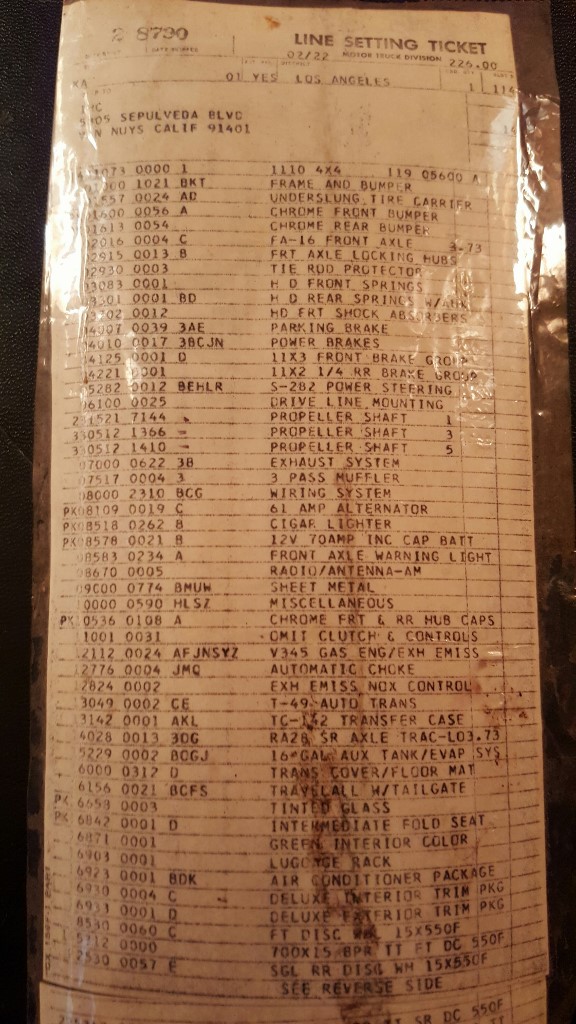 2 8790 LINE SETTING TICKET
02/22 MOTOR TRUCK DIVISION 226.00
KA 01 YES LOS ANGELES 1 114
SEPULVEDA BLVD
NUYS CALIF 91401
1073 0000 1 1110 4X4 119 05600 A
1021 BKT FRAME AND BUMPER
1557 0024 AD UNDERSLUNG TIRE CARRIER
1600 0056 A CHROME FRONT BUMPER
1613 0054 CHROME REAR BUMPER
2016 0004 C FA-16 FRONT AXLE 3.73
2915 0013 B FRT AXLE LOCKING HUBS
2930 0003 TIE ROD PROTECTOR
3083 0001 H D FRONT SPRINGS
3301 0001 BD H D REAR SPRINGS
3702 0012 HD FRT SHOCK ABSORBERS
4907 0039 3AE PARKING BRAKE
4010 0017 3BCJN POWER BRAKES
4125 0001 D 11X3 FRONT BRAKE GROUP
4221 0001 11X2 1/4 RR BRAKE GROUP
5282 0012 BEHLR S-282 POWER STEERING
06100 0025 DRIVE LINE MOUNTING
7144 PROPELLER SHAFT 1
330512 1366 - PROPELLER SHAFT 3
330512 1410 - PROPELLER SHAFT 5
07000 0622 3B EXHAUST SYSTEM
07517 0004 3 3 PASS MUFFLER
08000 2310 BCG WIRING SYSTEM
PK08109 0019 C 61 AMP ALTERNATOR
PK08518 0262 B CIGAR LIGHTER
PK08578 0021 B 12V 70AMP INC CAP BATT
08583 0234 A FRONT AXLE WARNING LIGHT
08670 0005 RADIO/ANTENNA-AM
09000 0774 BMUW SHEET METAL
0000 0590 HLSZ MISCELLANEOUS
PK 0536 0108 A CHROME FRT & RR HUB CAPS
1001 0031 OMIT CLUTCH & CONTROLS
2112 0024 AFJNSYZ V345 GAS ENG/EXH EMISS
2776 0004 JMQ AUTOMATIC CHOKE
2824 0002 EXH EMISS NOX CONTROL
3049 0002 CE T-49 AUTO TRANS
3142 0001 AKL TRANSFER CASE
4028 0013 3DG RA28 SR AXLE TRAC-LO3.73
5229 0002 BCGJ 16 GAL AUX TANK/EVAP SYS
6000 0312 D TRANS COVER/FLOOR MAT
6156 0021 BCFS TRAVELALL W/TAILGATE
PK 6698 0003 TINTED GLASS
PK 6842 0001 D INTERMEDIATE FOLD SEAT
6871 0001 GREEN INTERIOR COLOR
6903 0001 LUGGAGE RACK
6923 0001 BDK AIR CONDITIONER PACKAGE
6930 0004 C DELUXE INTERIOR TRIM PKG
6931 0001 D DELUXE EXTERIOR TRIM PKG
8530 0060 C FT DISC WH 15X550F
0000 700X15 8PR TT FT DC 550F
0057 E SGL RR DISC WH 15X550F
SEE REVERSE SIDE
SR DC 550F